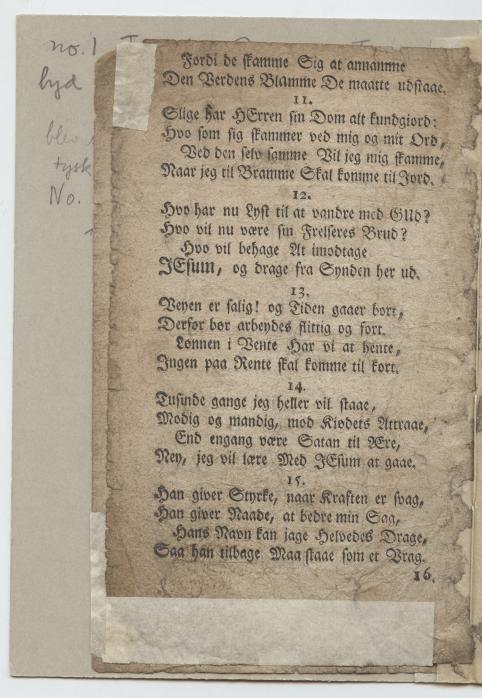 no. 1
lyd
blev
tysk
No.
Fordi de skamme Sig at annamme
Den Verdens Blamme De maatte udstaae.
11.
Slige har HErren sin Dom alt kundgiord:
Hvo som sig skammer ved mig og mit Ord,
Ved den selv samme Vil jeg mig skamme,
Naar jeg til Bramme Skal komme til Jord.
12.
Hvo har nu Lyst til at vandre med GUd?
Hvo vil nu være sin Frelseres Brud?
Hvo vil behage At imodtage
JEsum, og drage fra Synden her ud.
13.
Veyen er salig! og Tiden gaaer bort,
Derfor bør arbeydes flittig og fort.
Lønnen i Vente Har vi at hente,
Ingen paa Rente skal komme til kort.
14.
Tusinde gange jeg heller vil staae,
Modig og mandig, mod Kiødets Attraae,
End engang være Satan til Ære,
Ney, jeg vil lære Med JEsum at gaae.
15.
Han giver Styrke, naar Kraften er svag,
Han giver Naade, at bedre min Sag,
Hans Navn kan jage Helvedes Drage,
Saa han tilbage Maa staae som et Vrag.
16.